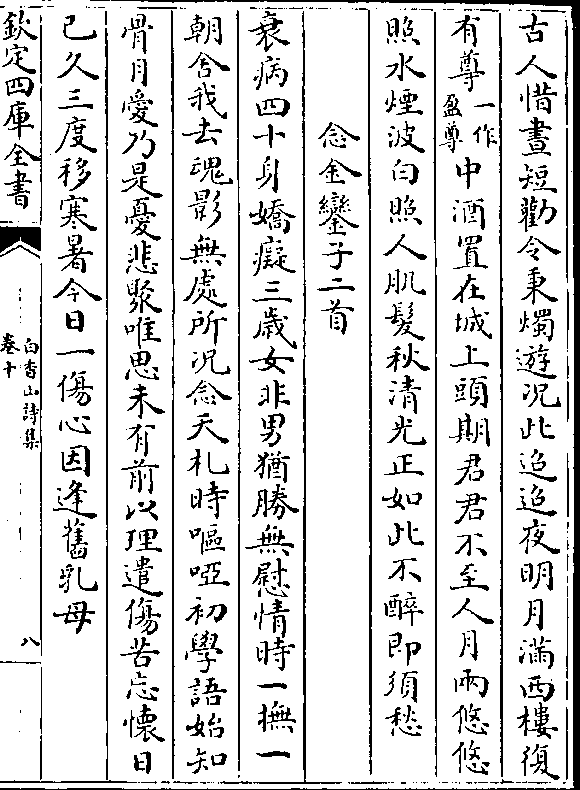 古人惜晝短勸令秉燭遊況此迢迢夜明月滿西樓復
有尊一作盈尊中酒置在城上頭期君君不至人月兩悠悠
照水煙波白照人肌髮秋清光正如此不醉即須愁
念金鑾子二首
衰病四十身嬌癡三歲女非男猶勝無慰情時一撫一
朝舍我去魂影無處所況念夭札時嘔啞初學語始知
骨月愛乃是憂悲聚唯思未有前以理遣傷苦忘懷日
已久三度移寒暑今日一傷心因逢舊乳母
欽定四庫全書
白香山詩集
卷十
八